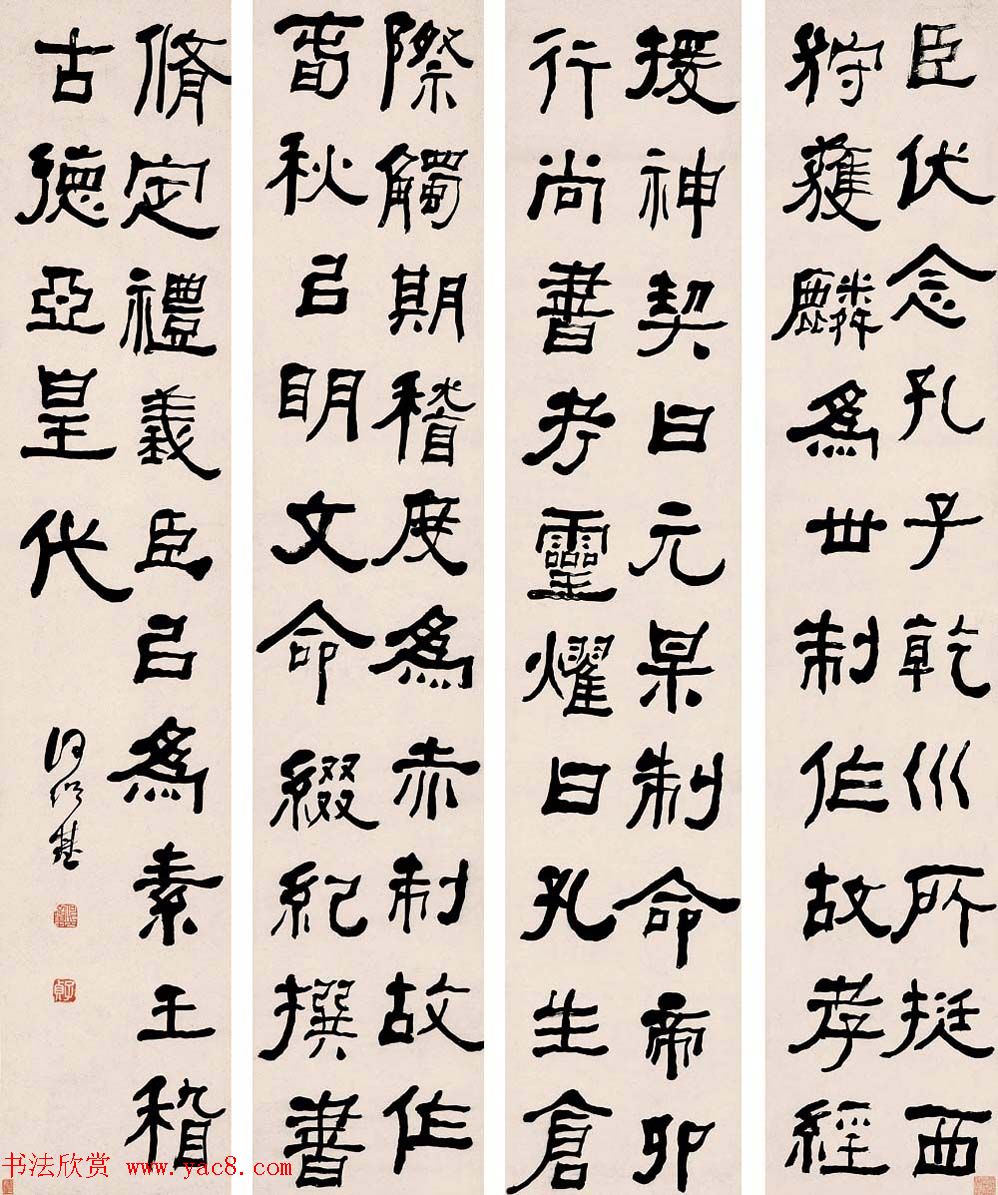 臣伏念孔子乾川所挺西
狩獲麟爲世制作故孝經
援神契曰元某制命帝卯
行尚書考靈燿曰孔生倉
際觸期稽度爲赤制故作
春秋㠯明文命綴紀撰書
脩定禮義臣㠯爲素王稽
古德亞皇代
何紹基
子貞
书法欣赏 www.yac8.com